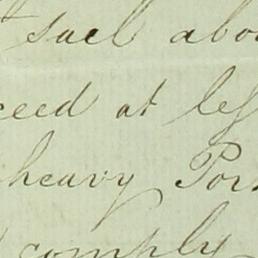 sael abo
ceed at les
heavy Por
comply